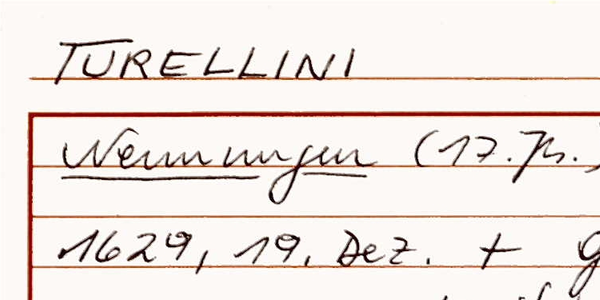 TURELLINI
Nennungen (17. Jh.)
1629, 19. Dez. +